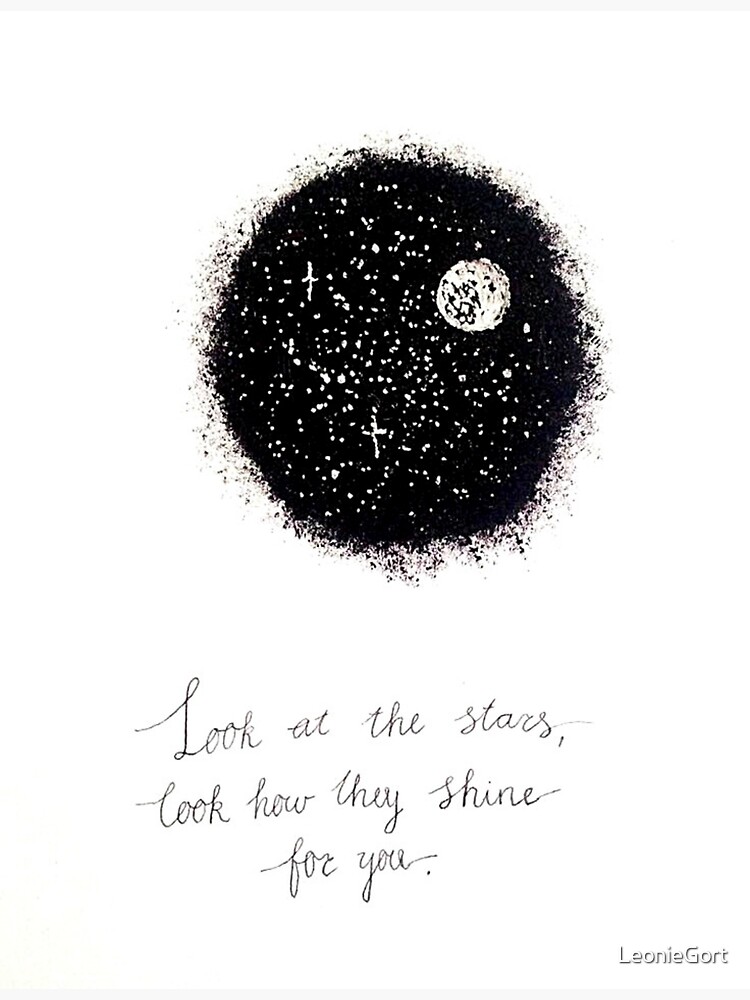 Look at the stars,
look how they shine
for you.
LeonieGort